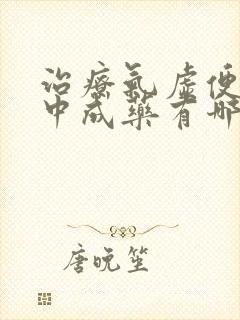 治療氣虛便
中成藥有哪
唐晚笙